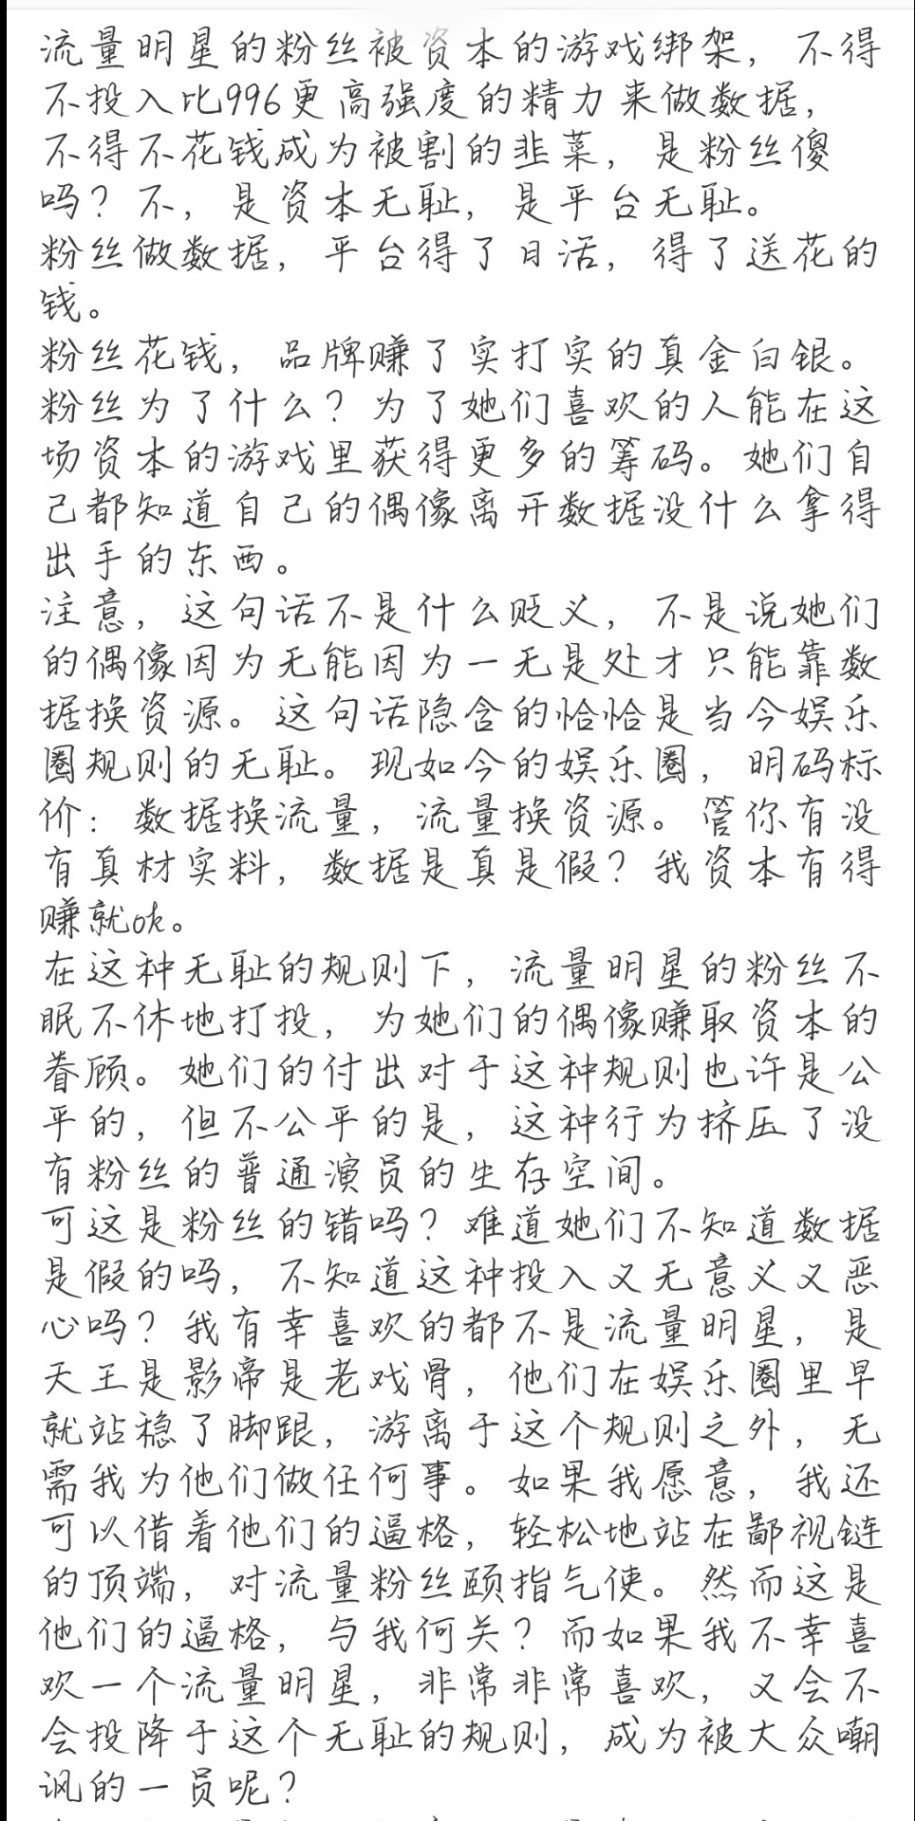 流量明星的粉丝被资本的游戏绑架，不得
不投入比996更高强度的精力来做数据，
不得不花钱成为被割的韭菜，是粉丝傻
吗？不，是资本无耻，是平台无耻。
粉丝做数据，平台得了日活，得了送花的
钱。
粉丝花钱，品牌赚了实打实的真金白银。
粉丝为了什么？为了她们喜欢的人能在这
场资本的游戏里获得更多的筹码。她们自
己都知道自己的偶像离开数据没什么拿得
出手的东西。
注意，这句话不是什么贬义，不是说她们
的偶像因为无能因为一无是处才只能靠数
据换资源。这句话隐含的恰恰是当今娱乐
圈规则的无耻。现如今的娱乐圈，明码标
价：数据换流量，流量换资源。管你有没
有真材实料，数据是真是假？我资本有得
赚就ok。
在这种无耻的规则下，流量明星的粉丝不
眠不休地打投，为她们的偶像赚取资本的
眷顾。她们的付出对于这种规则也许是公
平的，但不公平的是，这种行为挤压了没
有粉丝的普通演员的生存空间。
可这是粉丝的错吗？难道她们不知道数据
是假的吗，不知道这种投入又无意义又恶
心吗？我有幸喜欢的都不是流量明星，是
天王是影帝是老戏骨，他们在娱乐圈里早
就站稳了脚跟，游离于这个规则之外，无
需我为他们做任何事。如果我愿意，我还
可以借着他们的逼格，轻松地站在鄙视链
的顶端，对流量粉丝颐指气使。然而这是
他们的逼格，与我何关？而如果我不幸喜
欢一个流量明星，非常非常喜欢，又会不
会投降于这个无耻的规则，成为被大众嘲
讽的一员呢？